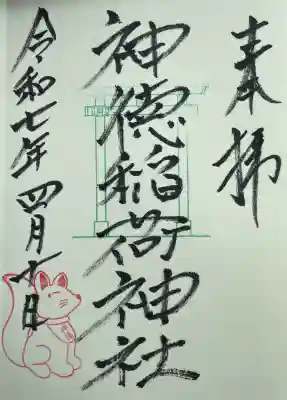 奉拝
神徳稲荷神社
令和七年四月十日